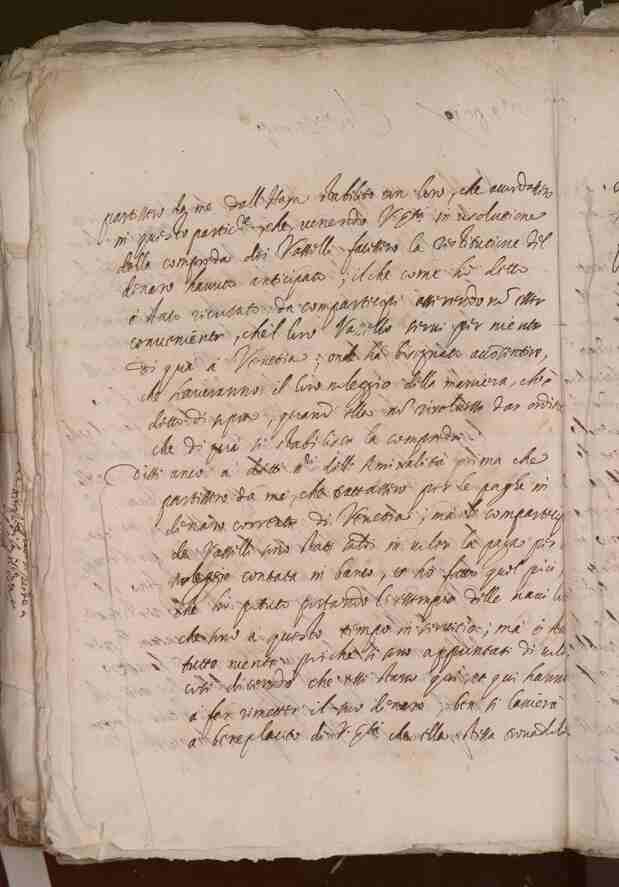 partissero da me dall'Haya stabilito con loro, che accordassero
in questo partic.re, che venendo V. Ecc. in risolutione
della compreda dei Vasselli facessero la restitutione del
denaro havuto anticipato; il che come hò detto
è stato ricusato da compartecipi asserendo nõ esser
conveniente, che'l loro Vassello servi per niente
di quà à Venetia; onde hà bisognato assentire,
che haveranno il loro noleggio della maniera, ch'è
detto di sopra, quand'ella nõ risolvesse dar ordine
che di quà si stabilisca la compreda.
Dissi anco à detti dell'Amiralità prima che
partissero da me, che trattassero per le paghe in
denaro corrente di Venetia; mà li compartecipi
de Vasselli sono stati saldi in voler la paga per
noleggio contata in banco, et hò fatto quel più,
che hò potuto portando l'essempio delle navi
che sono à questo tempo in servitio; mà è
tutto niente, perche si sono appuntati di
così dicendo che essi stano quì, et quì hanno
à far rimetter il suo denaro, ben si lasciera
à beneplacito di V. Ecc. che ella stessa